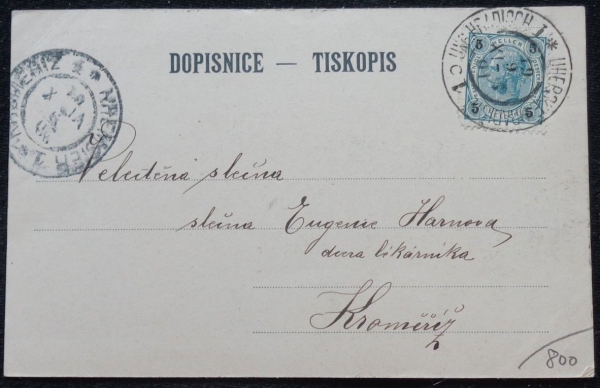 DOPISNICE — TISKOPIS
UNG. HRADISCH 1
5 5
5 5
Velectěná slečna
slečna Eugenie Harnova
dcera lékárníka
Kroměříž
800